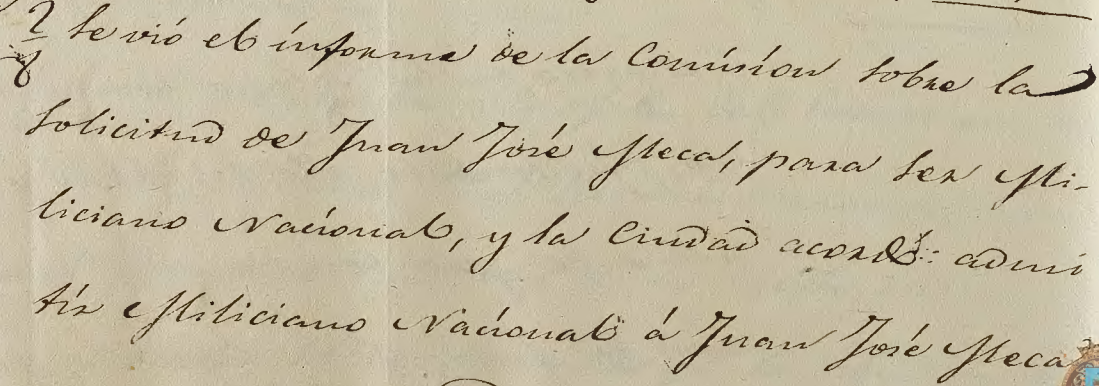 Se vió el informe de la Comision sobre la
solicitud de Juan José Meca, para ser Mi-
liciano Nacional, y la Ciudad acordó: admi
tir Miliciano Nacional á Juan José Meca